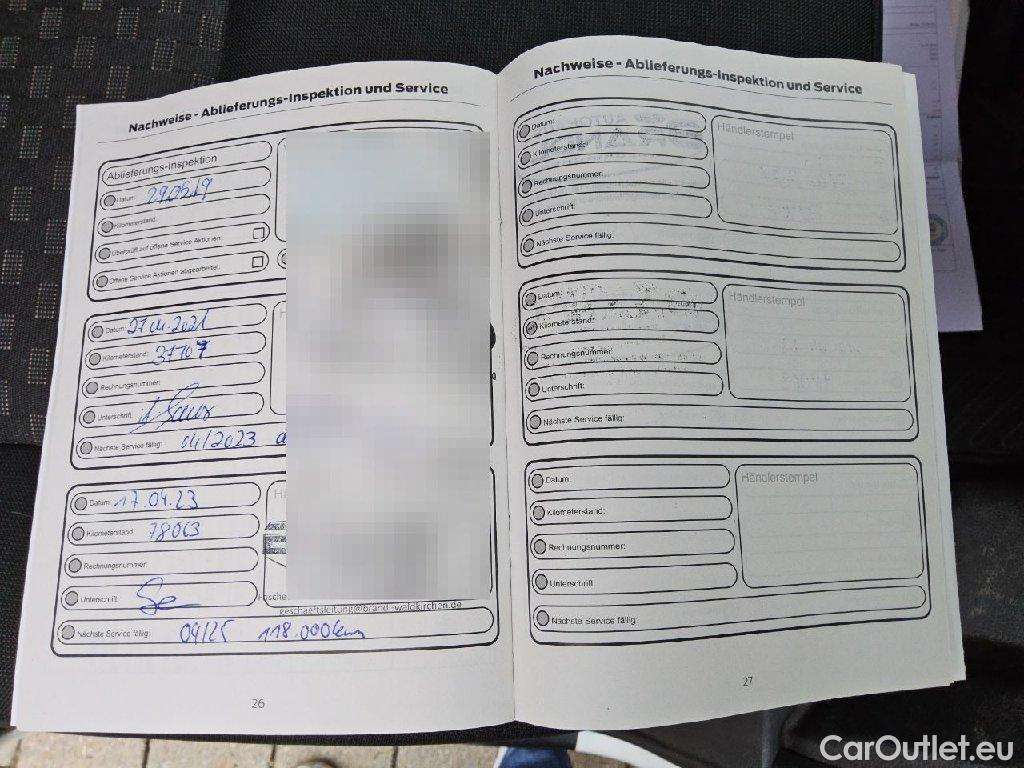 Nachweise - Ablieferungs-Inspektion und Service
Ablieferungs-Inspektion
Datum: 29.05.19
Kilometerstand:
Überprüft auf offene Service Aktionen:
Offene Service Aktionen abgearbeitet:
Datum: 27.04.2021
Kilometerstand: 37707
Rechnungsnummer:
Unterschrift:
Nächste Service fällig: 04/2023
Datum: 17.04.23
Kilometerstand: 78063
Rechnungsnummer:
Unterschrift:
geschaeftsleitung@brand-waldkirchen.de
Nächste Service fällig: 04/25 118.000km
26
Nachweise - Ablieferungs-Inspektion und Service
Datum:
Kilometerstand:
Rechnungsnummer:
Unterschrift:
Nächste Service fällig:
Händlerstempel
Datum:
Kilometerstand:
Rechnungsnummer:
Unterschrift:
Nächste Service fällig:
Händlerstempel
Datum:
Kilometerstand:
Rechnungsnummer:
Unterschrift:
Nächste Service fällig:
Händlerstempel
27
CarOutlet.eu